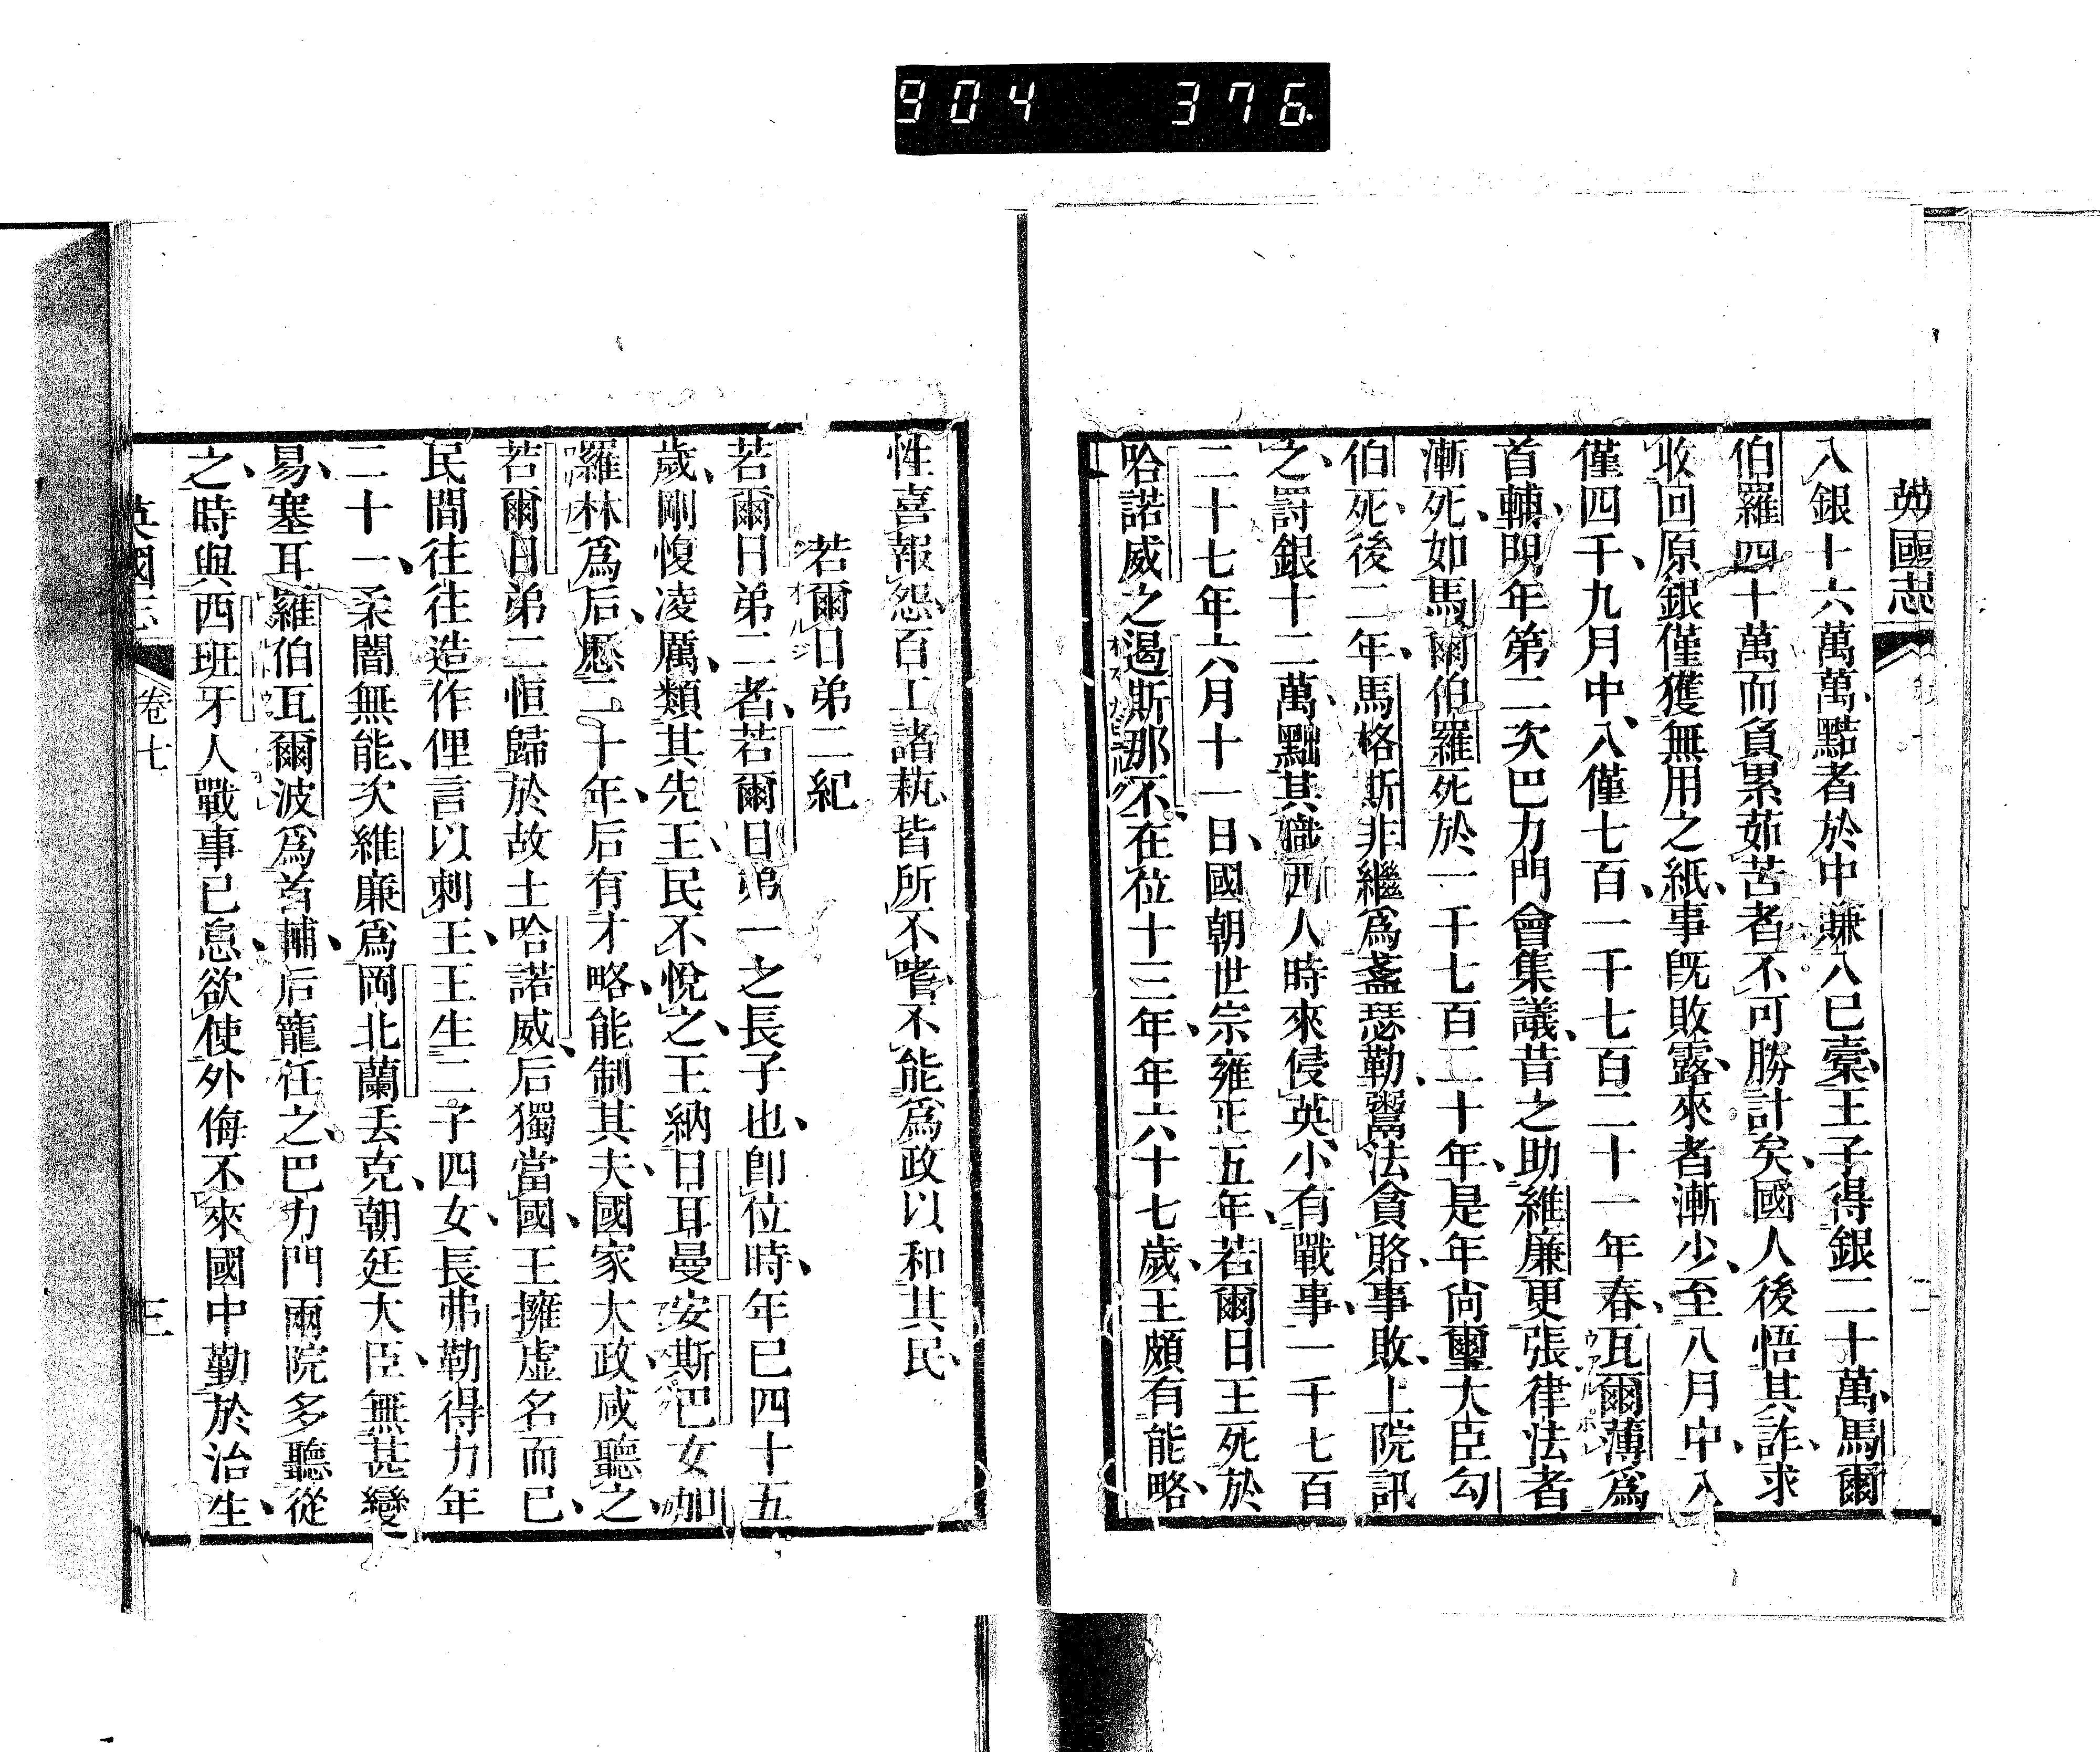 904 376
英國志
入銀十六萬萬、黠者於中賺入已槖、王子得銀二十萬、馬爾
伯羅四十萬、而負累茹苦者、不可勝計矣、國人後悟其詐、求
收回原銀、僅獲無用之紙、事旣敗露、來者漸少、至八月中、入
僅四千、九月中、入僅七百、一千七百二十一年春、瓦爾薄爲
首輔、明年第二次巴力門會集議、昔之助維廉更張律法者
漸死、如馬爾伯羅死於一千七百二十年、是年尙璽大臣勾
伯死、後二年、馬格斯非繼爲盞瑟勒、鬻法貪賂、事敗、上院訊
之、罰銀十二萬、黜其職、西人時來侵英、小有戰事、一千七百
二十七年六月十一日、國朝世宗雍正五年、若爾日王死於
哈諾威之遏斯那不、在位十三年、年六十七歲、王頗有能略、
性喜報怨、百工諸執、皆所不嗜、不能爲政以和其民、
若爾日弟二紀
若爾日弟二者、若爾日弟一之長子也、卽位時、年已四十五
歲、剛愎凌厲、類其先王、民不悅之、王納日耳曼安斯巴女加
羅林爲后、歷二十年、后有才略、能制其夫、國家大政、咸聽之、
若爾日弟二恒歸於故土哈諾威、后獨當國、王擁虛名而已、
民間往往造作俚言以刺王、王生二子四女、長弗勒得力年
二十一、柔闇無能、次維廉爲岡北蘭丟克、朝廷大臣、無甚變
易、塞耳羅伯瓦爾波爲首輔、后寵任之、巴力門兩院多聽從
之、時與西班牙人戰事已怠、欲使外侮不來、國中勤於治生、
英國志
卷七
三